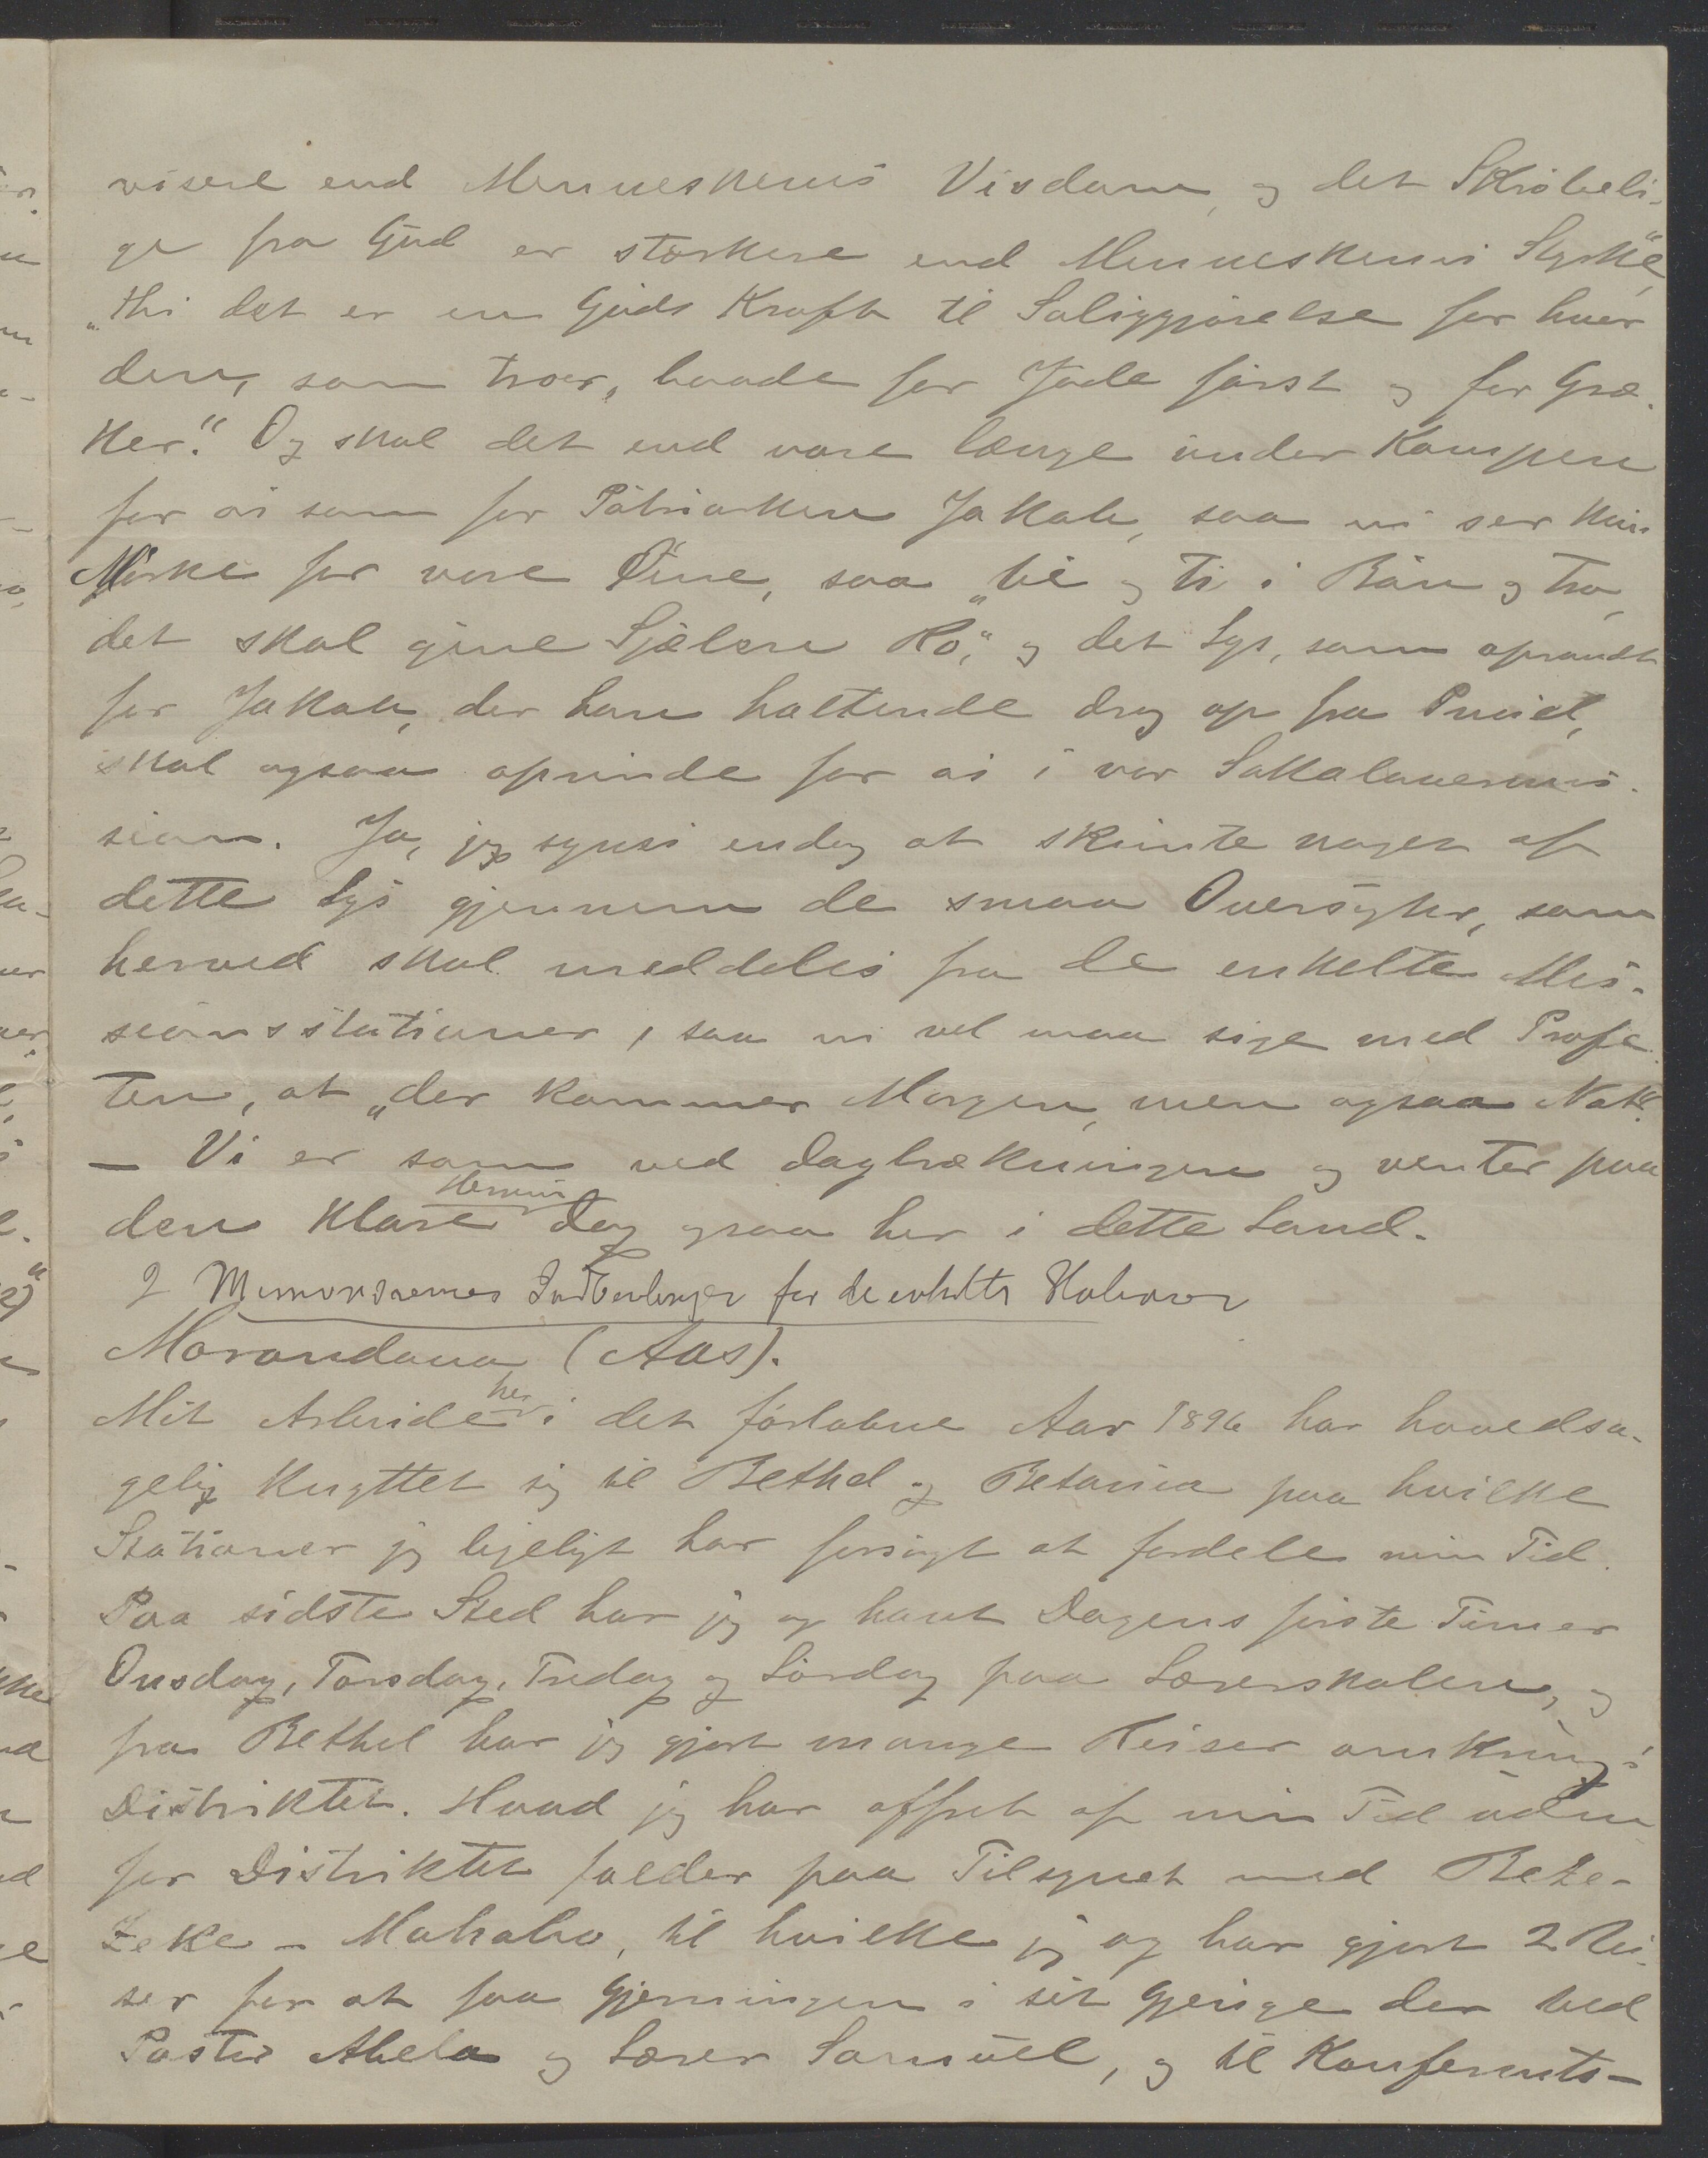 visere end Menneskenes Visdom, og det Skrøbeli-
ge fra Gud er stærkere end Menneskenes Styrke"
"thi det er en Guds Kraft til Saliggjørelse for hver
den, som troer, baade for Jøde først og for Græ-
ker." Og skal det end vare længe under Kampen
for os som for Patriarken Jakob, saa vi ser kun
Mørke for vore Øine, saa "bi og ti i Bøn og Tro,
det skal give Sjælen Ro," og det Lys, som oprandt
for Jakob, der han haltende drog op fra Pniel,
skal ogsaa oprinde for os i vor Sakalavermis-
sion. Ja, jeg synes endog at skimte noget af
dette Lys gjennem de smaa Oversigter, som
herved skal meddeles fra de enkelte Mis-
sionsstationer, saa vi vel maa sige med Profe-
ten, at "der kommer Morgen, men ogsaa Nat."
— Vi er som ved Dagbrækningen og venter paa
den klare Herrens Dag ogsaa her i dette Land.
2 Missionærernes Indberetninger for de enkelte Stationer
Morondava (Aas).
Mit Arbeide her i det forløbne Aar 1896 har hovedsa-
gelig knyttet sig til Bethel og Betania paa hvilke
Stationer jeg ligeligt har forsøgt at fordele min Tid.
Paa sidste Sted har jeg og havt Dagens første Timer
Onsdag, Torsdag, Fredag og Lørdag paa Lærerskolen, og
fra Bethel har jeg gjort mange Reiser omkring i
Distriktet. Hvad jeg har offret af min Tid uden
for Distriktet falder paa Tilsynet med Beze-
zeke - Mahabo, til hvilke jeg og har gjort 2 Rei-
ser for at faa Gjerningen i sit Gjenge der ved
Pastor Abela og Lærer Samuel, og til Konferents-